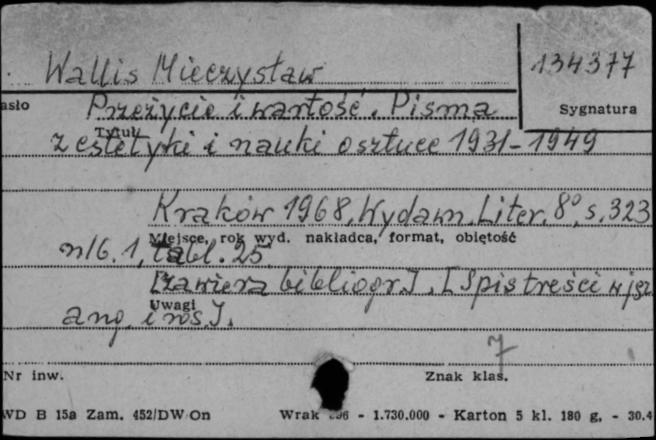 Wallis Mieczysław
134377
asło Przeżycie i wartość. Pisma Sygnatura
Tytuł
z estetyki i nauki o sztuce 1931-1949
Kraków 1968, Wydawn. Liter. 8°, s. 323
Miejsce, rok wyd. nakładca, format, objętość
nlb. 1, tabl. 25
[zawiera bibliogr.]. [Spis treści w jęz.
Uwagi
ang. i ros.].
7
Nr inw. Znak klas.
WD B 15a Zam. 452/DW On Wrak - 1.730.000 - Karton 5 kl. 180 g. - 30.4